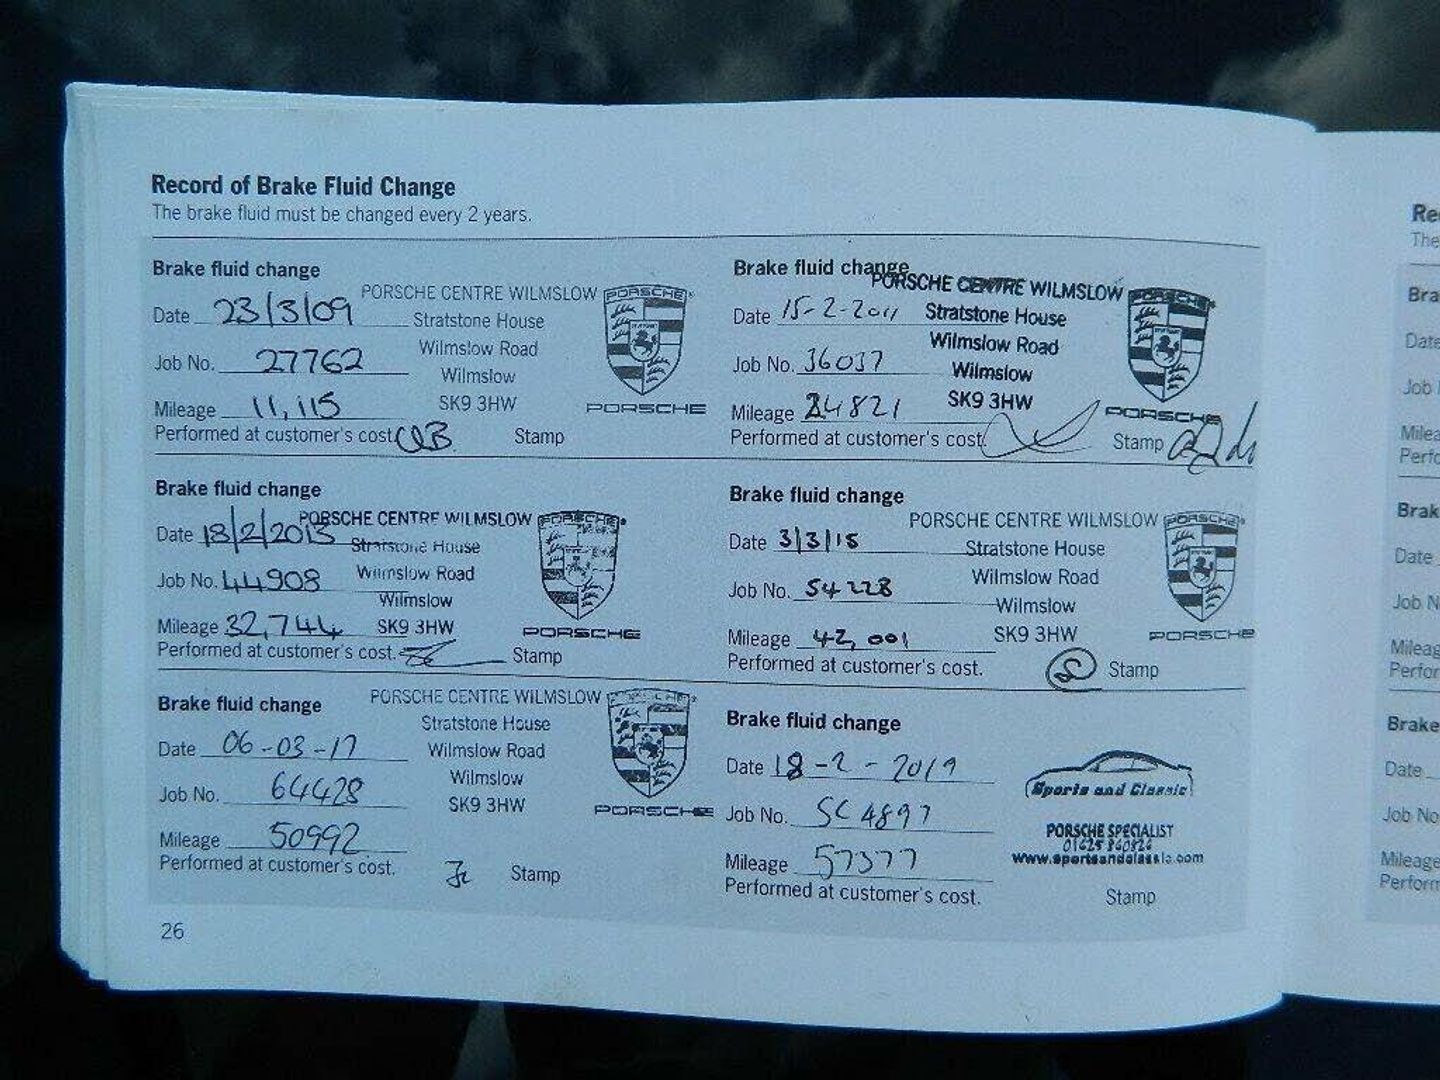 Record of Brake Fluid Change
The brake fluid must be changed every 2 years.
Brake fluid change
PORSCHE CENTRE WILMSLOW
PORSCHE
Date 23/3/09
Stratstone House
Job No. 27762
Wilmslow Road
Wilmslow
Mileage 11,115
SK9 3HW
PORSCHE
Performed at customer's cost
Stamp
Brake fluid change
PORSCHE CENTRE WILMSLOW
PORSCHE
Date 15-2-2011
Stratstone House
Wilmslow Road
Job No. 36037
Wilmslow
Mileage 24821
SK9 3HW
PORSCHE
Performed at customer's cost.
Stamp
Brake fluid change
PORSCHE CENTRE WILMSLOW
PORSCHE
Date 18/2/2013
Stratstone House
Job No. 44908
Wilmslow Road
Wilmslow
Mileage 32,744
SK9 3HW
PORSCHE
Performed at customer's cost.
Stamp
Brake fluid change
PORSCHE CENTRE WILMSLOW
PORSCHE
Date 3/3/15
Stratstone House
Job No. 54228
Wilmslow Road
Wilmslow
Mileage 42,001
SK9 3HW
PORSCHE
Performed at customer's cost.
Stamp
Brake fluid change
PORSCHE CENTRE WILMSLOW
Stratstone House
Date 06-03-17
Wilmslow Road
Job No. 64428
Wilmslow
SK9 3HW
PORSCHE
Mileage 50992
Performed at customer's cost.
Stamp
Brake fluid change
Date 18-2-2019
Sports and Classic
Job No. SC 4897
PORSCHE SPECIALIST
www.sportsandclassic.com
Mileage 57377
Performed at customer's cost.
Stamp
26
Re
The
Bra
Date
Job
Milea
Perfo
Brak
Date
Job N
Mileag
Perfor
Brake
Date
Job No
Mileage
Perform